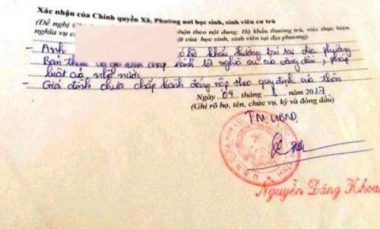 Xác nhận của Chính quyền Xã, Phường nơi học sinh, sinh viên cư trú
(Đề nghị C                    nhận theo nội dung: Hộ khẩu thường trú, việc thực hiện
nghĩa vụ c                    của học sinh, sinh viên tại địa phương)
- Anh                    có hộ khẩu thường trú tại địa phương
Bản thân và gia đình chấp hành tốt nghĩa vụ của công dân, pháp
luật của nhà nước
- Gia đình chưa chấp hành đóng nộp theo quy định của thôn
Ngày 04 tháng 8 năm 2017
(Ghi rõ họ, tên, chức vụ, ký và đóng dấu)
TM. UBND
Nguyễn Đăng Khoa